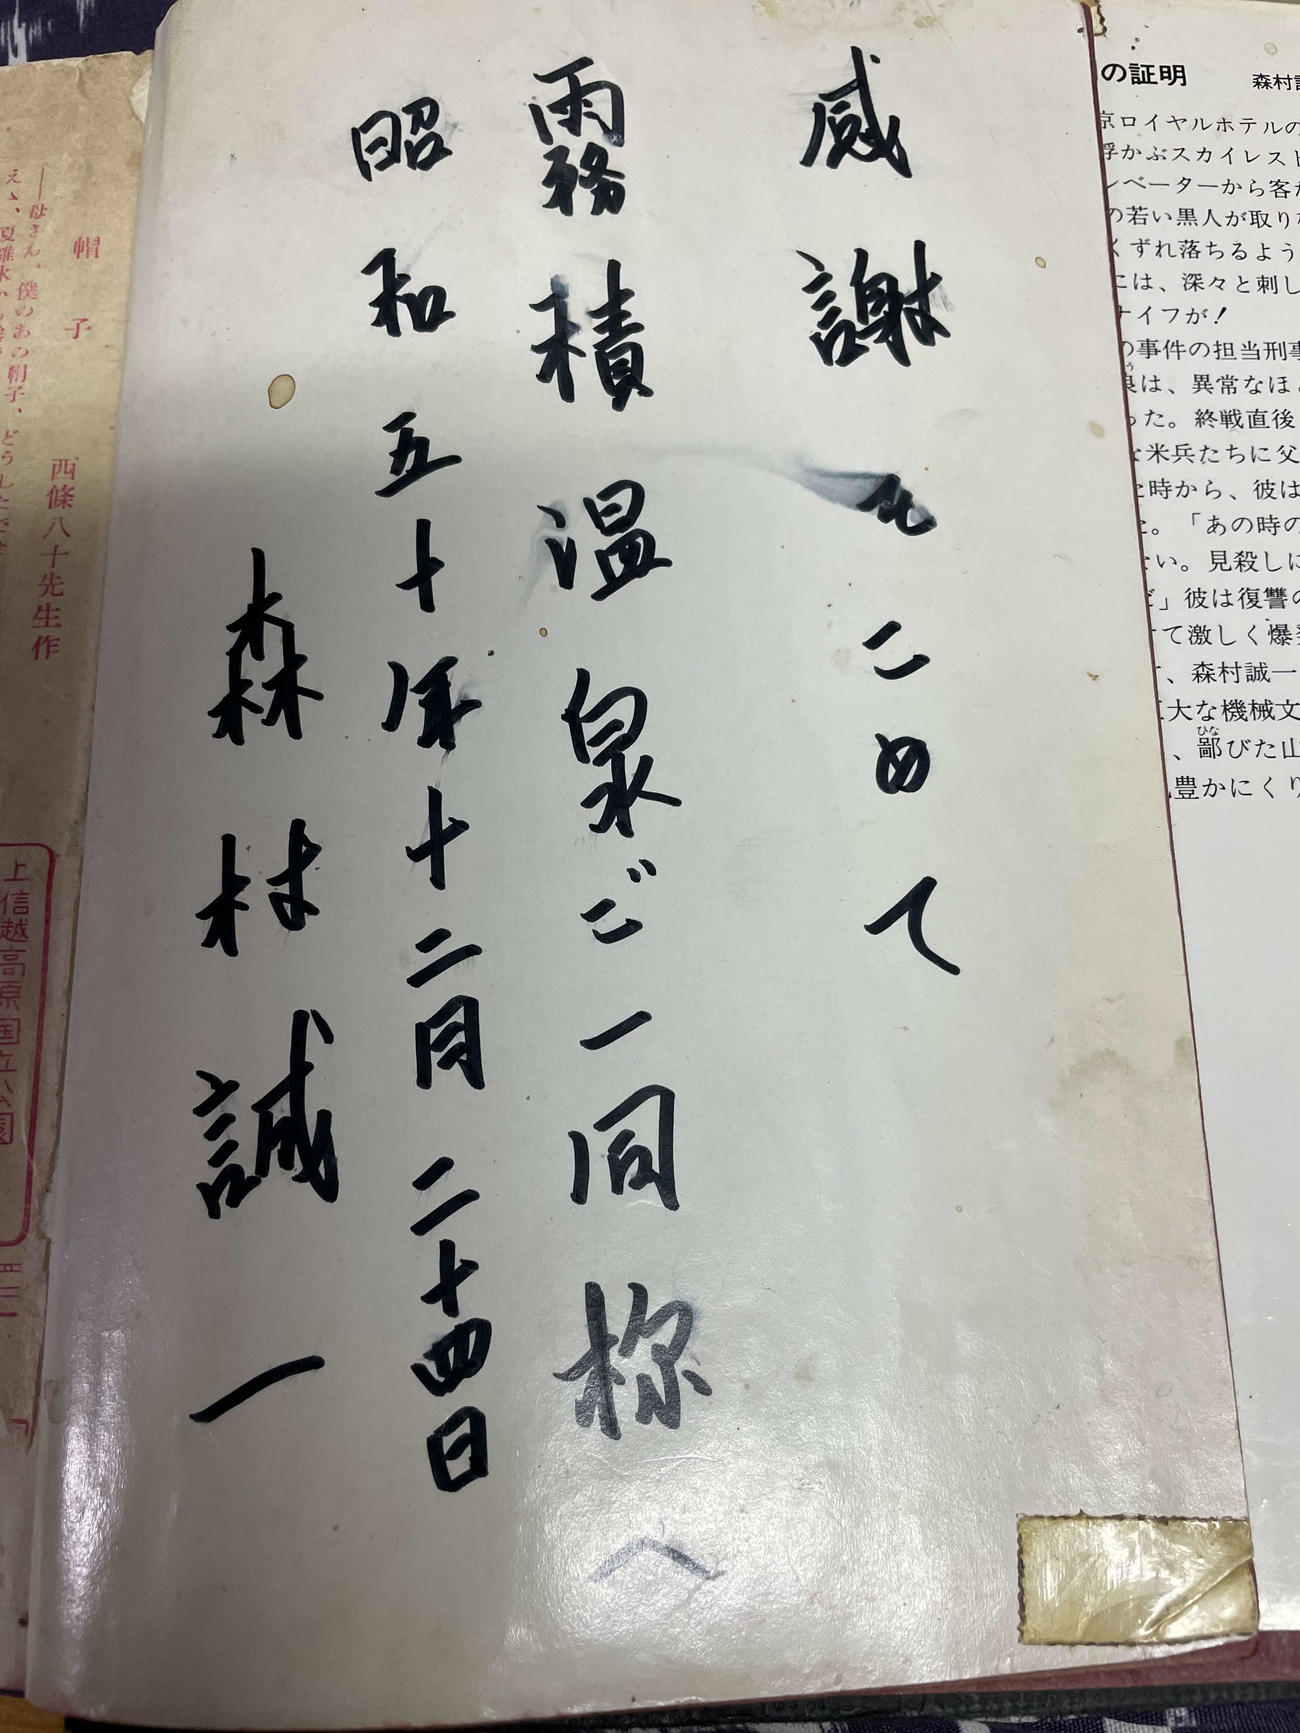 の証明 森村
京ロイヤルホテルの
浮かぶスカイレスト
レベーターから客が
の若い黒人が取り
くずれ落ちるよう
には、深々と刺し
ナイフが!
の事件の担当刑事
は、異常なほど
った。終戦直後
な米兵たちに父
た時から、彼は
た。「あの時の
ない。見殺しに
だ」彼は復讐の
けて激しく爆発
、森村誠一
巨大な機械文
、鄙びた山
ひな
豊かにくり
感謝をこめて
霧積温泉ご一同様へ
昭和五十年十二月二十四日
森村誠一
帽子
西條八十先生作
――母さん、僕のあの帽子、どうしたで
ええ、夏碓氷から
上信越高原国立公園